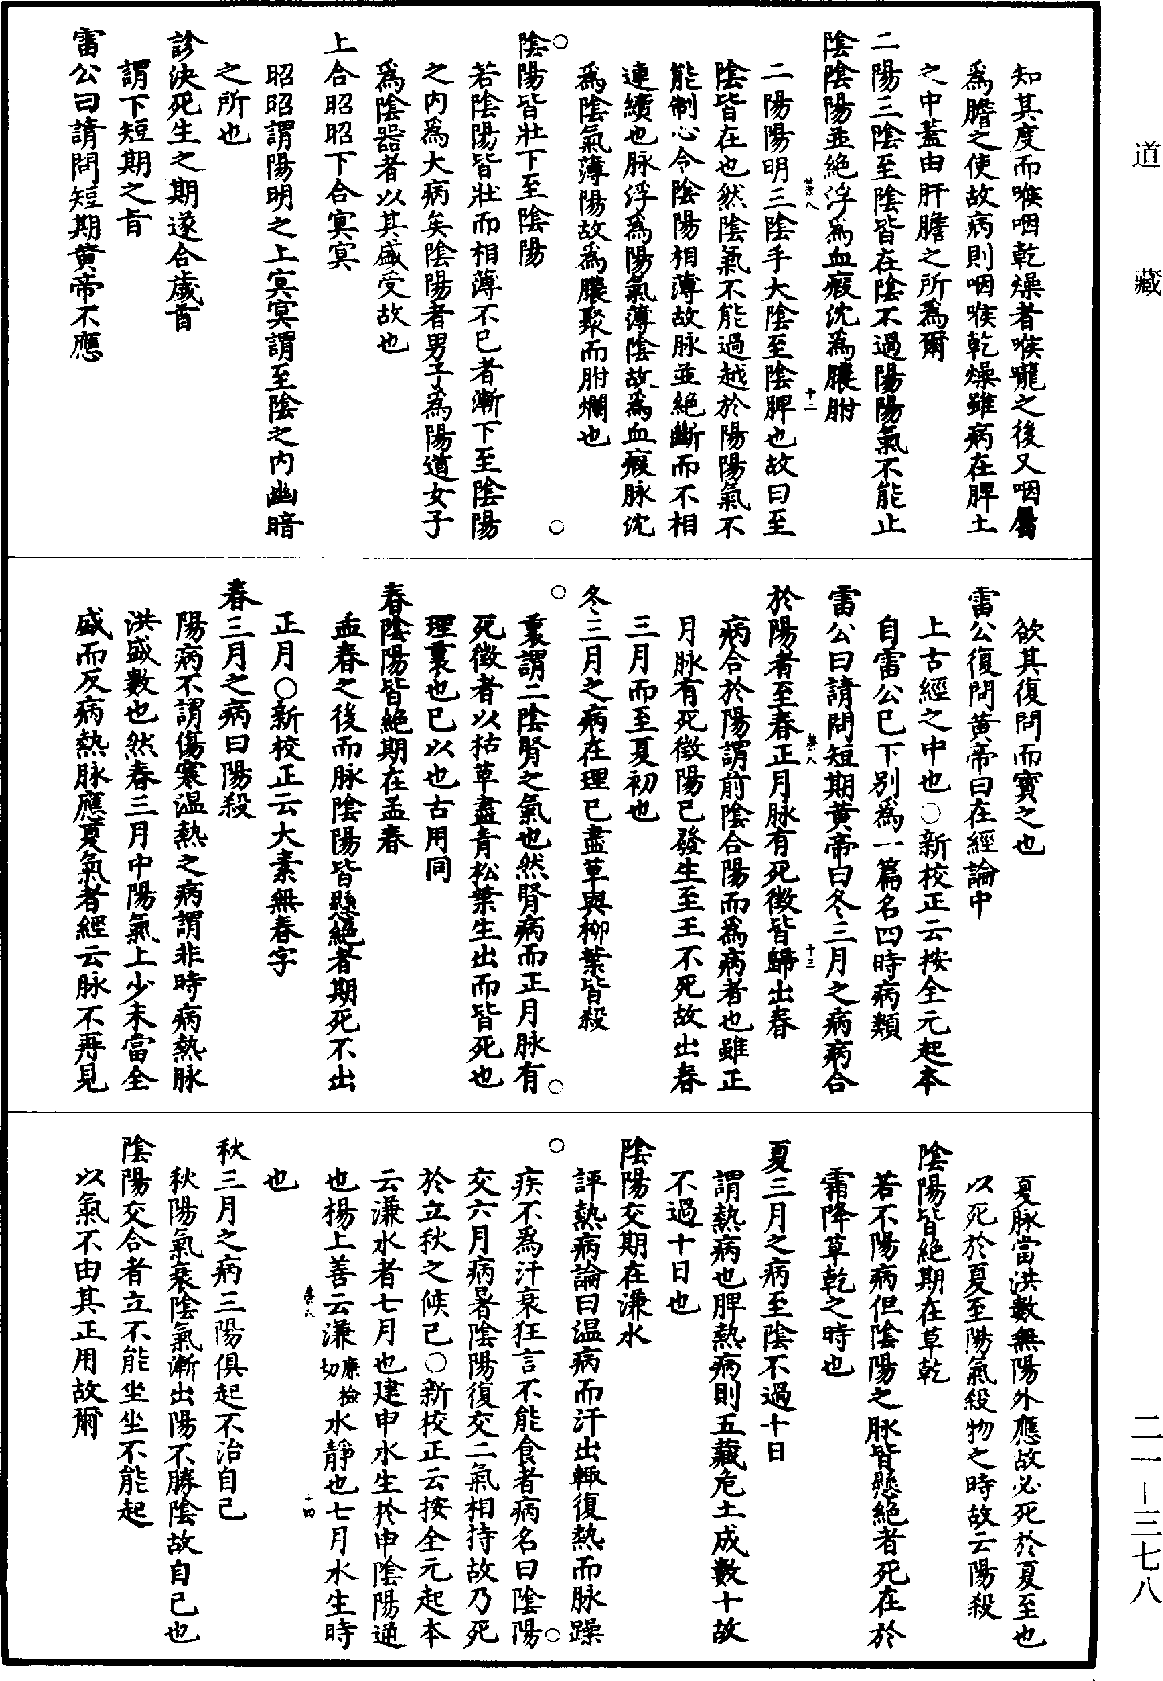 道藏
知其度而喉咽乾燥者喉嚨之後又咽屬
爲膽之使故病則咽喉乾燥雖病在脾土
之中蓋由肝膽之所爲爾
二陽三陰至陰皆在陰不過陽陽氣不能止
陰陰陽並絕浮爲血瘕沈爲膿胕
二陽陽明三陰手大陰至陰脾也故曰至
陰皆在也然陰氣不能過越於陽陽氣不
能制心今陰陽相薄故脉並絕斷而不相
連續也脉浮爲陽氣薄陰故爲血瘕脉沈
爲陰氣薄陽故爲膿聚而胕爛也
陰陽皆壯下至陰陽
若陰陽皆壯而相薄不已者漸下至陰陽
之内爲大病矣陰陽者男子爲陽道女子
爲陰器者以其盛受故也
上合昭昭下合冥冥
昭昭謂陽明之上冥冥謂至陰之内幽暗
之所也
診決死生之期遂合歲首
謂下短期之旨
雷公曰請問短期黄帝不應
欲其復問而寶之也
雷公復問黄帝曰在經論中
上古經之中也○新校正云按全元起本
自雷公已下別爲一篇名四時病類
雷公曰請問短期黄帝曰冬三月之病病合
於陽者至春正月脉有死徵皆歸出春
病合於陽謂前陰合陽而爲病者也雖正
月脉有死徵陽已發生至王不死故出春
三月而至夏初也
冬三月之病在理已盡草與柳葉皆殺
裏謂二陰腎之氣也然腎病而正月脉有
死徵者以枯草盡青松葉生出而皆死也
理裏也已以也古用同
春陰陽皆絕期在孟春
孟春之後而脉陰陽皆懸絕者期死不出
正月○新校正云太素無春字
春三月之病曰陽殺
陽病不謂傷寒温熱之病謂非時病熱脉
洪盛數也然春三月中陽氣上少未當全
盛而反病熱脉應夏氣者經云脉不再見
夏脉當洪數無陽外應故必死於夏至也
以死於夏至陽氣殺物之時故云陽殺
陰陽皆絕期在草乾
若不陽病但陰陽之脉皆懸絕者死在於
霜降草乾之時也
夏三月之病至陰不過十日
謂熱病也脾熱病則五藏危土成數十故
不過十日也
陰陽交期在溓水
評熱病論曰温病而汗出輒復熱而脉躁
疾不爲汗衰狂言不能食者病名曰陰陽
交六月病暑陰陽復交二氣相持故乃死
於立秋之候已○新校正云按全元起本
云溓水者七月也建申水生於申陰陽逆
也楊上善云溓廉檢切水靜也七月水生時
也
秋三月之病三陽俱起不治自已
秋陽氣衰陰氣漸出陽不勝陰故自已也
陰陽交合者立不能坐坐不能起
以氣不由其正用故爾
二一—三七八